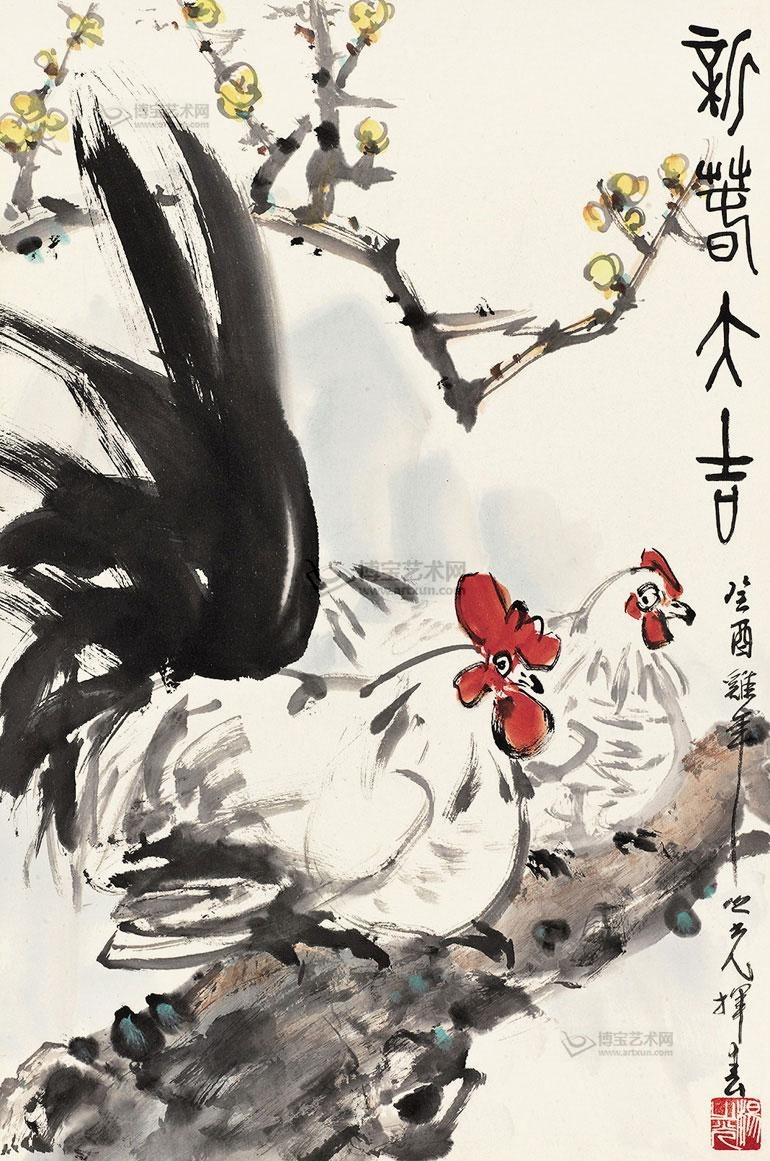 新春大吉
癸酉雞年之光揮春
楊之光
博宝艺术网
www.artxun.com
博宝艺术网
www.artxun.com
博宝艺术网
www.artxun.com